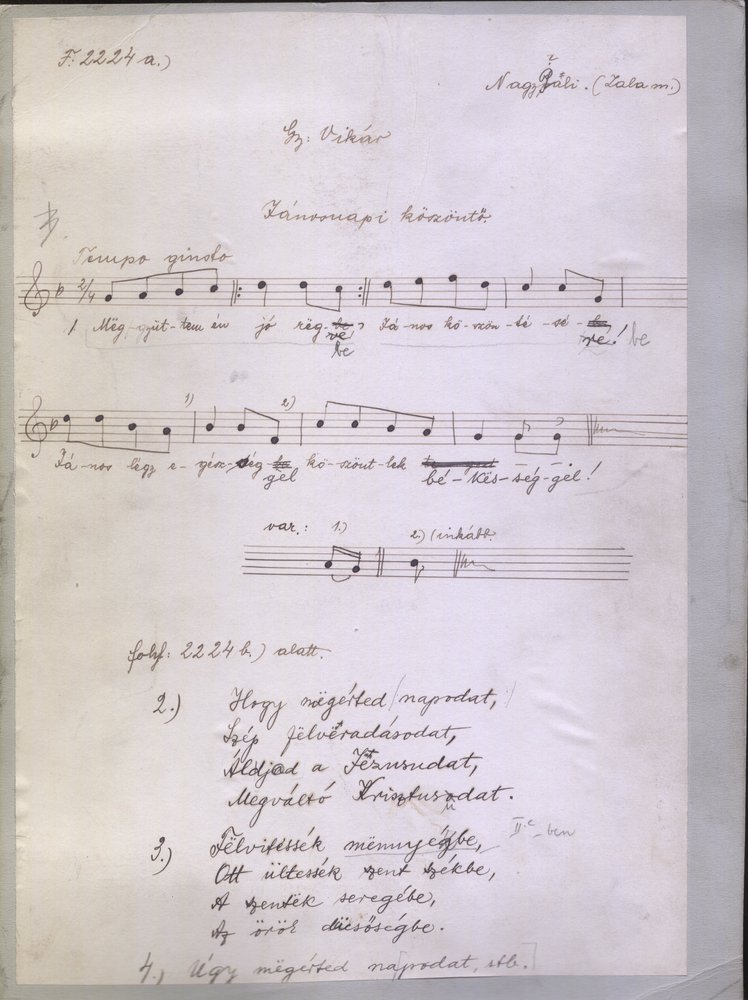 F. 2224 a.)
Nagy Páli. (Zala m.)
Gy: Vikár
Jánosnapi köszöntő.
Tempo giusto
2/4
1 Mëg-gyüt-tem én jó rëg-be vé be, Já-nos kö-szön-té-sé-re! be
1) 2)
Já-nos légy e-gész-ség gel kö-szönt-lek bé-kës-ség-gel!
var.: 1.) 2.) (inkább.
folyt: 2224 b.) alatt.
2.) Hogy mëgérted napodat,
Szép fëlvëradásodat,
Áldjad a Jézusudat,
Megváltó Krisztusodat.
3.) Fëlvitessék mënnyégbe, II.c-ben
Ott ültessék szent székbe,
A szentëk seregébe,
Az örök dücsőségbe.
4., Úgy mëgérted napodat, stb.